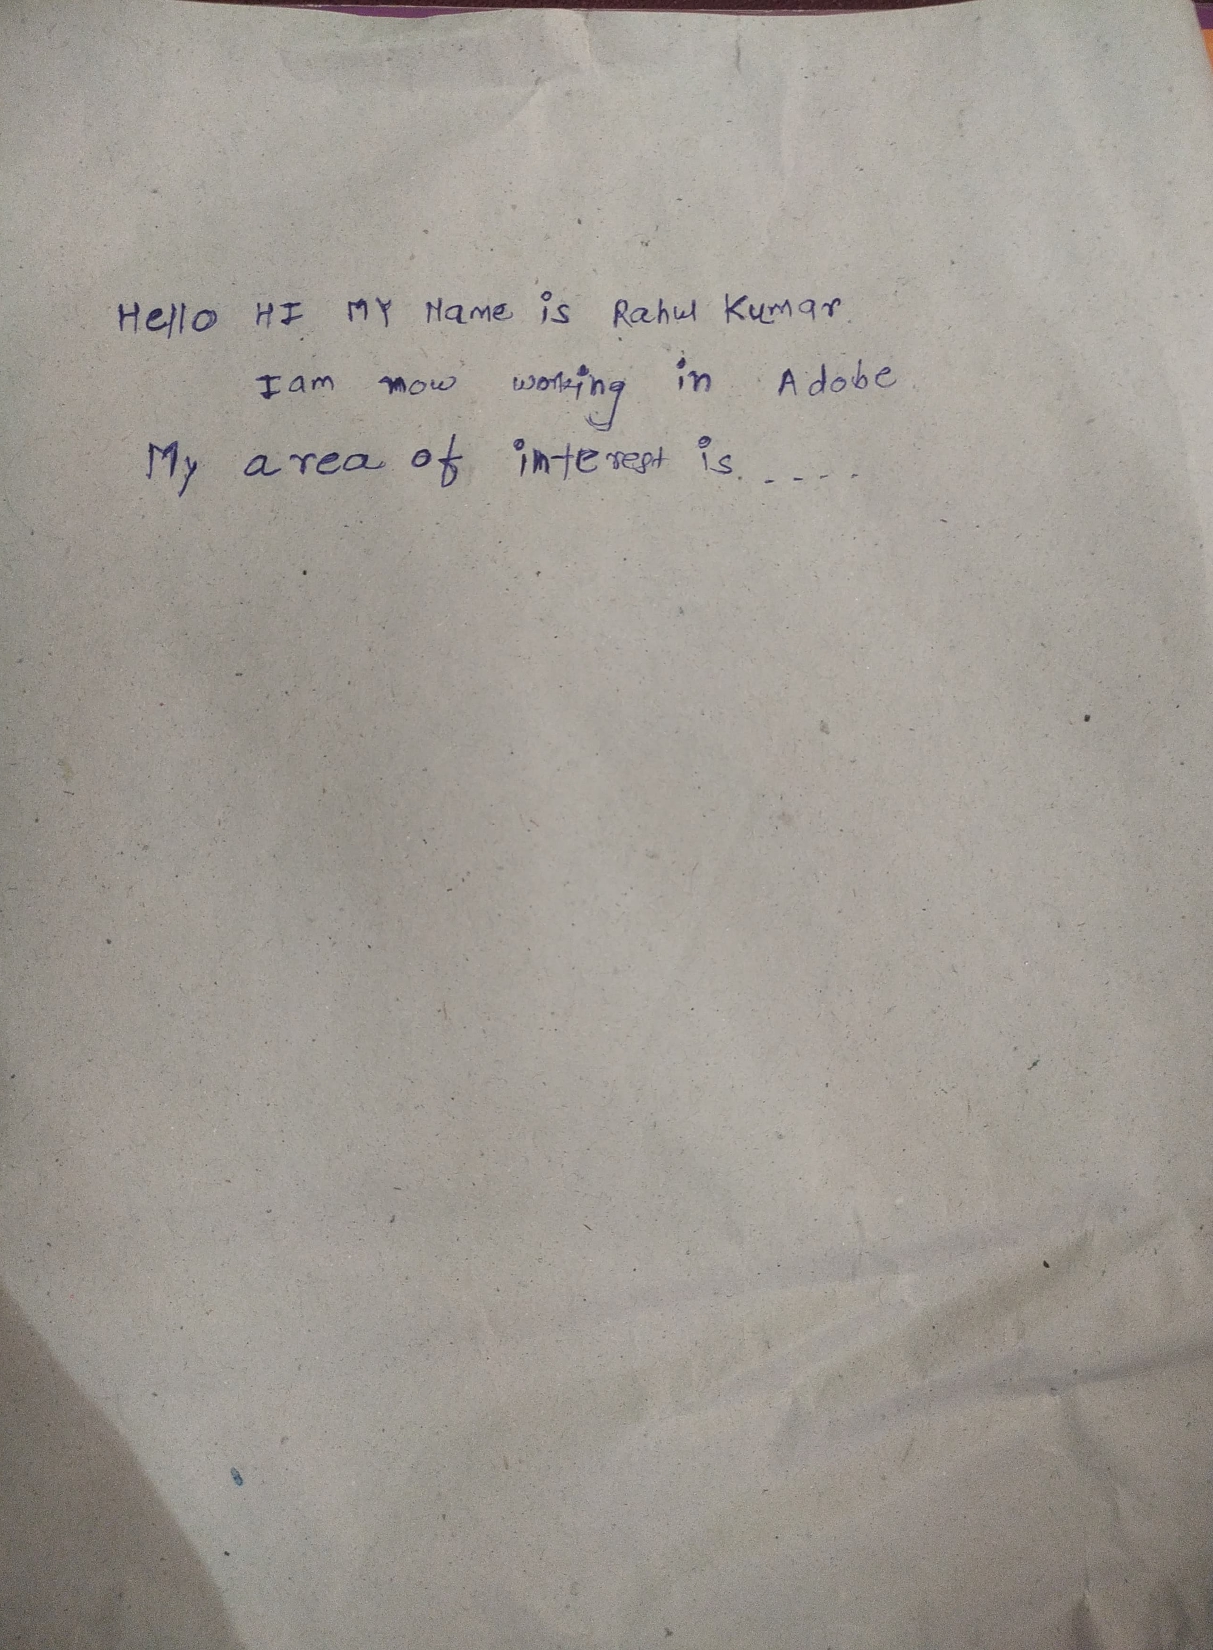 Hello HI MY Name is Rahul Kumar.
I am now working in Adobe
My area of interest is.----